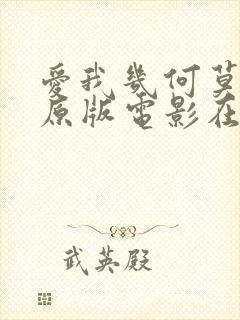 愛我幾何莫
原版電影在
武英殿